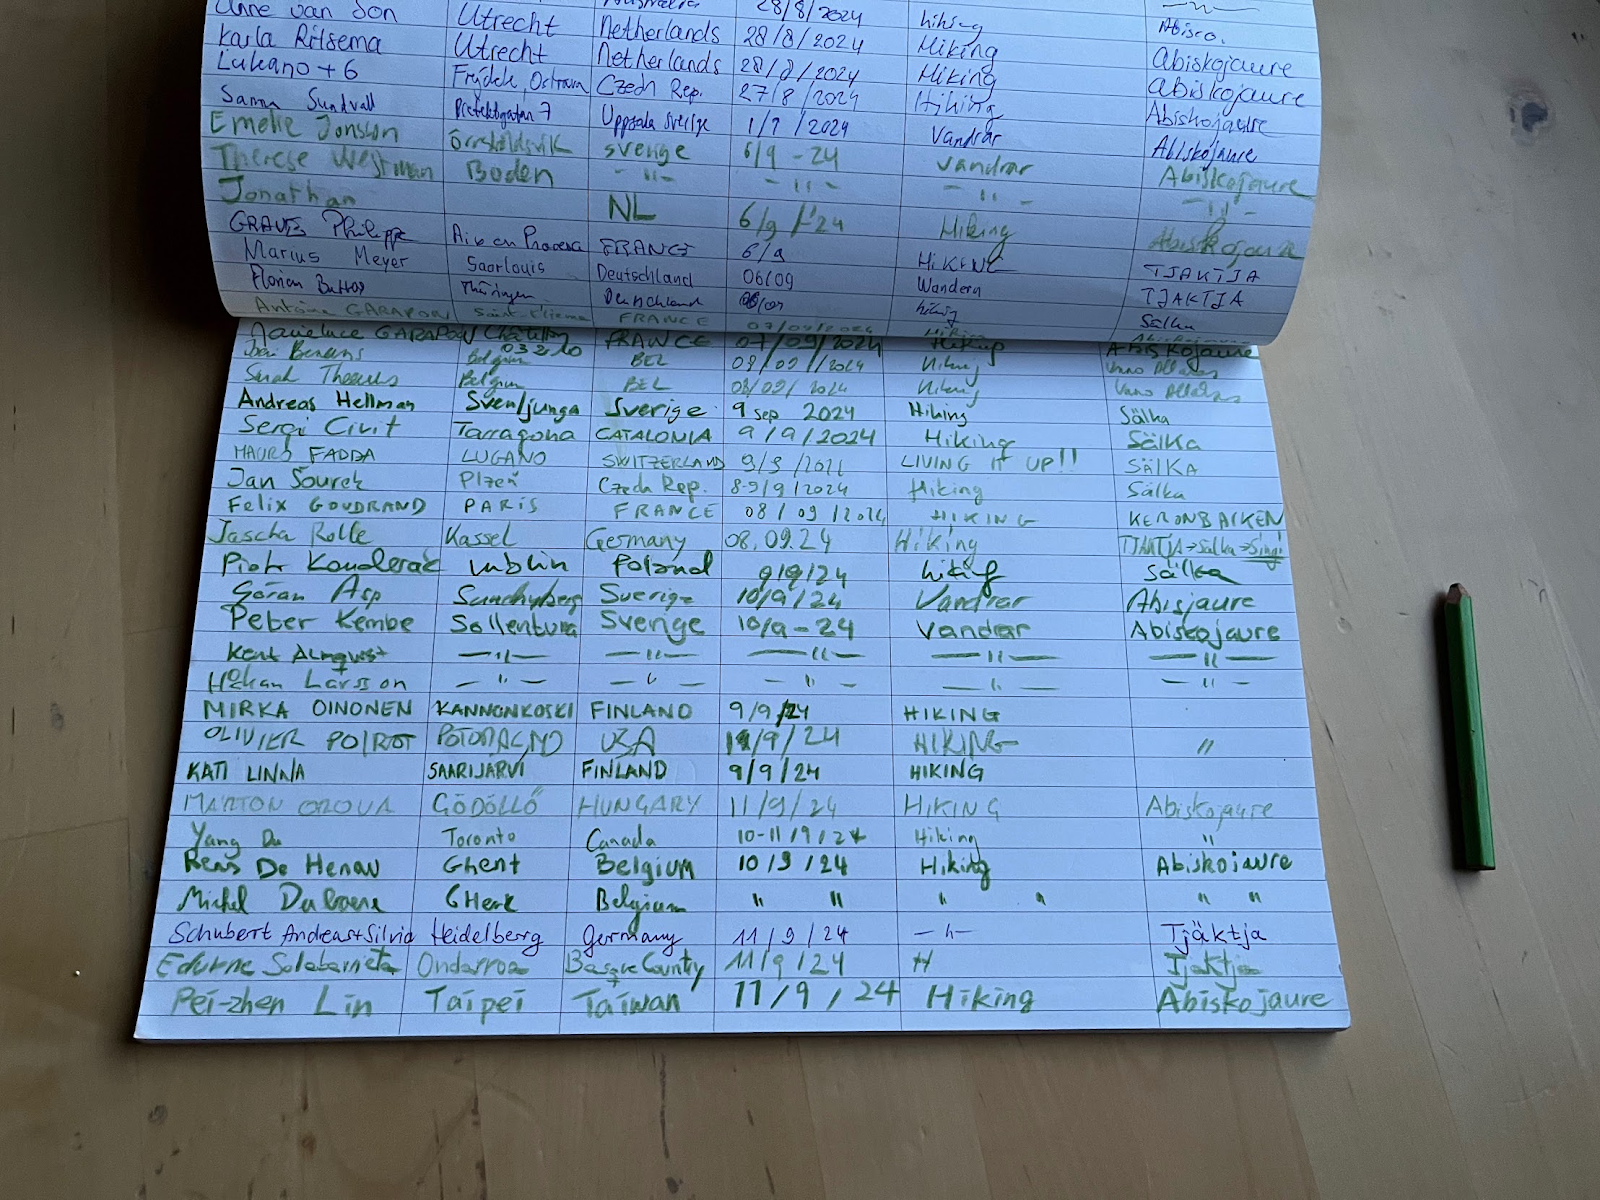 Anne van Son Utrecht Netherlands 28/8/2024 hiking Abisco.
Karla Ritsema Utrecht Netherlands 28/8/2024 Hiking Abiskojaure
Lukano + 6 Frýdek, Ostrava Czech Rep. 27/8/2024 Hiking Abiskojaure
Sanna Sundvall Uppsala Sverige 1/9/2024 Vandrar Abiskojaure
Emelie Jonsson Örnsköldsvik Sverige 6/9 -24 Vandrar Abiskojaure
Therese Westman Boden - " - - " - - " - - " -
Jonathan NL 6/9/'24 Hiking Abiskojaure
GRAVES Philippe FRANCE 6/9 HIKING TJAKTJA
Marius Meyer Saarlouis Deutschland 06/09 Wandern TJAKTJA
Florian Thüringen Deutschland 06/09 hiking Sälka
Antoine GARAPON Saint-Etienne FRANCE 07/09/2024
GARAPON Châtillon 03210 FRANCE 07/09/2024 Hiking Abiskojaure
Belgium BEL 08/09/2024 Hiking
Belgium BEL 08/09/2024 Hiking
Andreas Hellman Svenljunga Sverige 9 sep 2024 Hiking Sälka
Sergi Civit Tarragona CATALONIA 9/9/2024 Hiking Sälka
MAURO FADDA LUGANO SWITZERLAND 9/9/2024 LIVING IT UP!! SÄLKA
Jan Sourek Plzeň Czech Rep. 8-9/9/2024 Hiking Sälka
Felix GOUDRAND PARIS FRANCE 08/09/2024 HIKING KERONBACKEN
Jascha Rolle Kassel Germany 08.09.24 Hiking TJÄKTJA→Sälka→Singi
Piotr Kouderak Lublin Poland 9/9/24 hiking Sälka
Göran Asp Sundbyberg Sverige 10/9/24 Vandrar Abisjaure
Peter Kembe Sollentuna Sverige 10/9-24 Vandrar Abiskojaure
Kent Almqvist — " — — " — — " — — " — — " —
Håkan Larsson — " — — " — — " — — " — — " —
MIRKA OINONEN KANNONKOSKI FINLAND 9/9/24 HIKING
OLIVIER POIROT POTOMAC, MD USA 11/9/24 HIKING "
KATI LINNA SAARIJARVI FINLAND 9/9/24 HIKING
MÁRTON OROVA GÖDÖLLŐ HUNGARY 11/9/24 HIKING Abiskojaure
Yang Du Toronto Canada 10-11/9/24 Hiking "
Rens De Henau Ghent Belgium 10/9/24 Hiking Abiskojaure
Michel Ghent Belgium " " " " " "
Schubert Andreas+Silvia Heidelberg Germany 11/9/24 — " — Tjäktja
Edurne Solabarrieta Ondarroa Basque Country 11/9/24 H Tjäktja
Pei-zhen Lin Taipei Taiwan 11/9/24 Hiking Abiskojaure